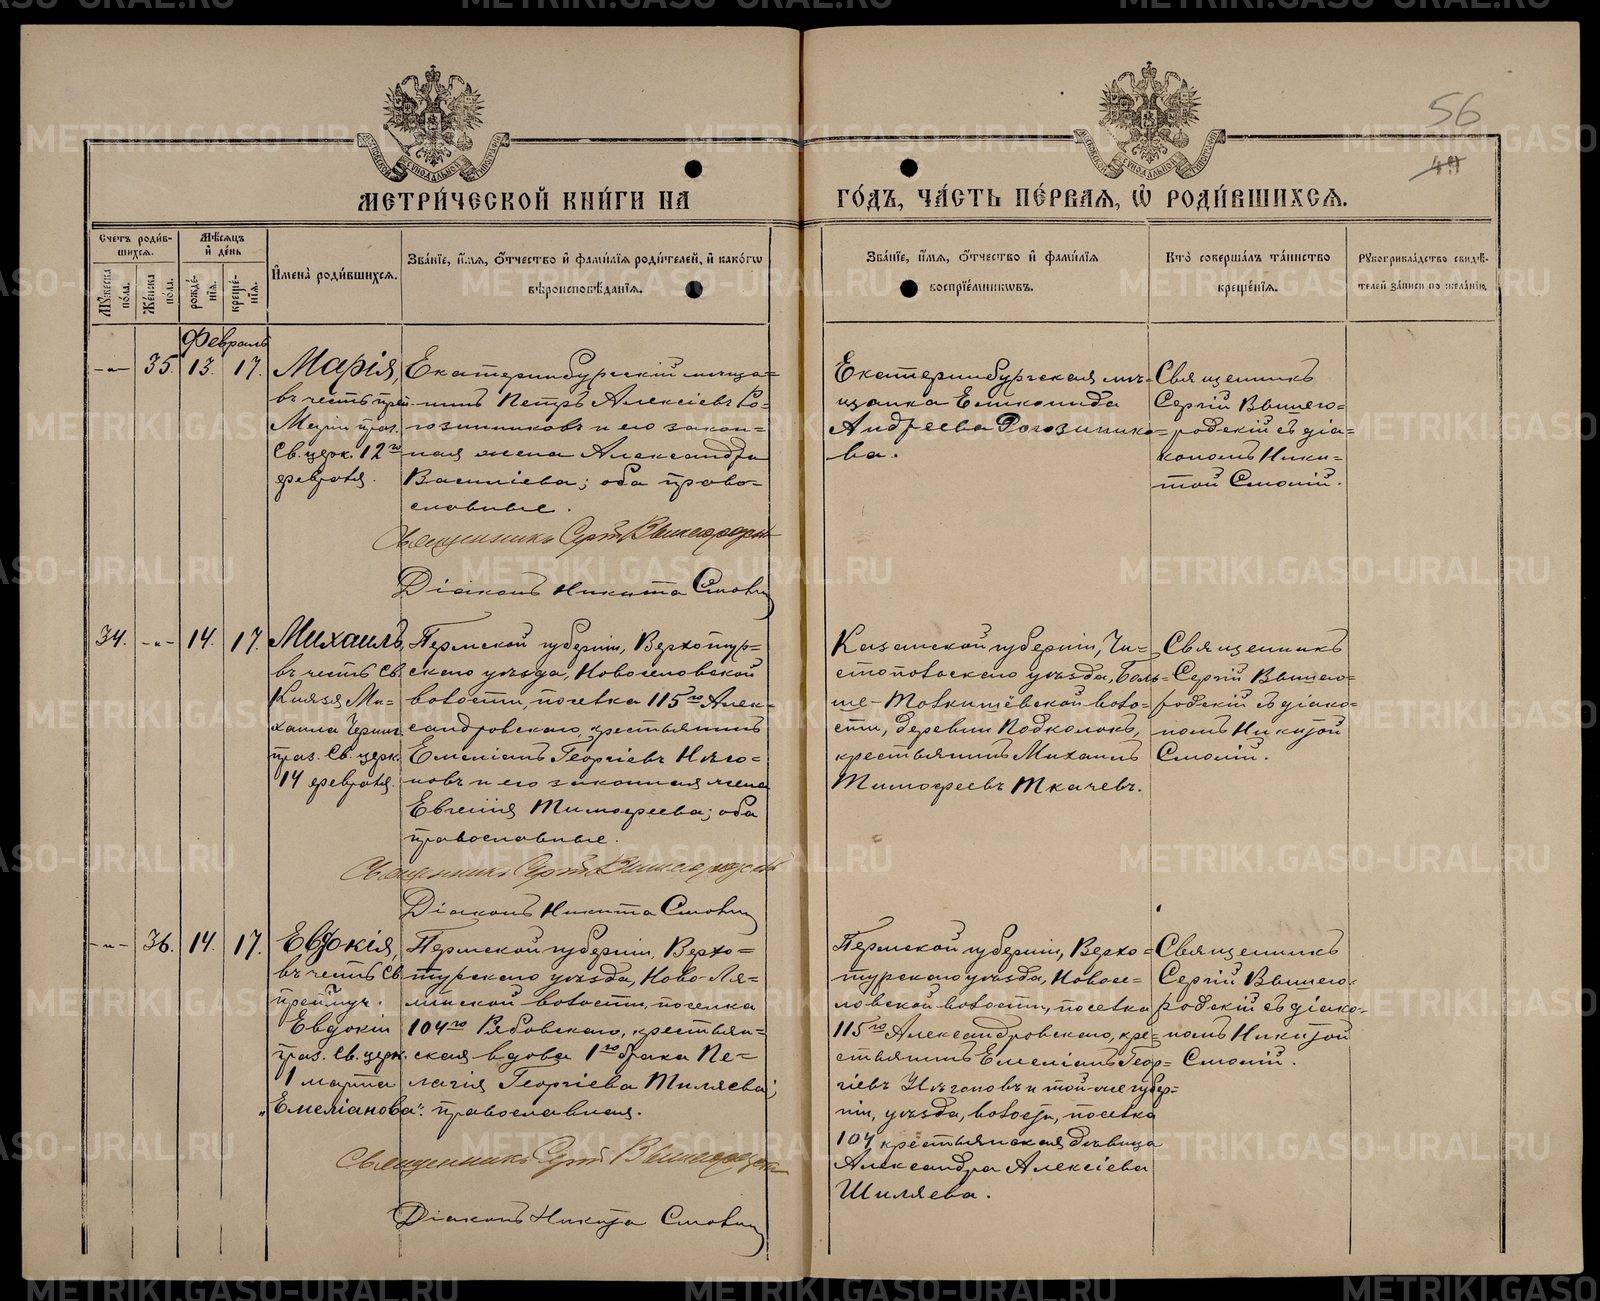 56
МЕТРИ́ЧЕСКОЙ КНИ́ГИ НА ГО́ДЪ, ЧА́СТЬ ПЕ́РВАѦ, Ѡ҆ РОДИ́ВШИХСѦ.
Сче́тъ роди́в-
шихсѧ.
Мꙋ́жеска
по́ла.
Же́нска
по́ла.
Мѣ́сѧцъ
и҆ де́нь
рожде́-
нїѧ.
креще́-
нїѧ.
И҆мена̀ роди́вшихсѧ.
Зва́нїе, и҆́мѧ, ѻ҆́тчество и҆ фами́лїѧ роди́телей, и҆ како́гѡ
вѣроисповѣ́данїѧ.
Зва́нїе, и҆́мѧ, ѻ҆́тчество и҆ фами́лїѧ
воспрїе́мникѡвъ.
Кто̀ соверша́лъ та́инство
креще́нїѧ.
Рꙋкоприкла́дство свидѣ́-
телей за́писи по жела́нїю.
Февраль
-"- 35. 13. 17.
Марія,
въ честь преп.
Маріи праз.
Св. церк. 12го
февраля.
Екатеринбургскій мѣща-
нинъ Петръ Алексіевъ Ро-
гозинниковъ и его закон-
ная жена Александра
Василіева; оба право-
славные.
Священникъ Сергій Вышегородскій
Діаконъ Никита Смолин
Екатеринбургская мѣ-
щанка Епиконида
Андреева Рогозинико-
ва.
Священникъ
Сергій Вышего-
родскій съ діа-
кономъ Ники-
той Смолин.
34. -"- 14. 17.
Михаилъ,
въ честь Св.
Князя Ми-
хаила Черниг.
праз. Св. церк.
14 февраля.
Пермской губерніи, Верхотур-
скаго уѣзда, Новоселовской
волости, поселка 115го Алек-
сандровскаго, крестьянинъ
Емеліанъ Георгіевъ Няго-
новъ и его законная жена
Евгенія Тимофеева; оба
православные.
Священникъ Сергій Вышегородскій
Діаконъ Никита Смолин
Казанской губерніи, Чи-
стопольскаго уѣзда, Боль-
ше-Толкишевской воло-
сти, деревни Подколокъ,
крестьянинъ Михаилъ
Тимофеевъ Ткачевъ.
Священникъ
Сергій Вышего-
родскій съ діако-
номъ Никитой
Смолин.
-"- 36. 14. 17.
Евдокія,
въ честь Св.
преп. муч.
Евдокіи
праз. Св. церк.
1 марта
"Емеліанова".
Пермской губерніи, Верхо-
турскаго уѣзда, Ново-Ля-
линской волости, поселка
104го Рябовскаго, крестьян-
ская вдова 1го брака Пе-
лагія Георгіева Шиляева;
православная.
Священникъ Сергій Вышегородскій
Діаконъ Никита Смолин
Пермской губерніи, Верхо-
турскаго уѣзда, Новосе-
ловской волости, поселка
115го Александровскаго, кре-
стьянинъ Емеліанъ Геор-
гіевъ Нягоновъ и той-же губер-
ніи, уѣзда, волости, поселка
104 крестьянская дѣвица
Александра Алексіева
Шиляева.
Священникъ
Сергій Вышего-
родскій съ діако-
номъ Никитой
Смолин.
METRIKI.GASO-URAL.RU